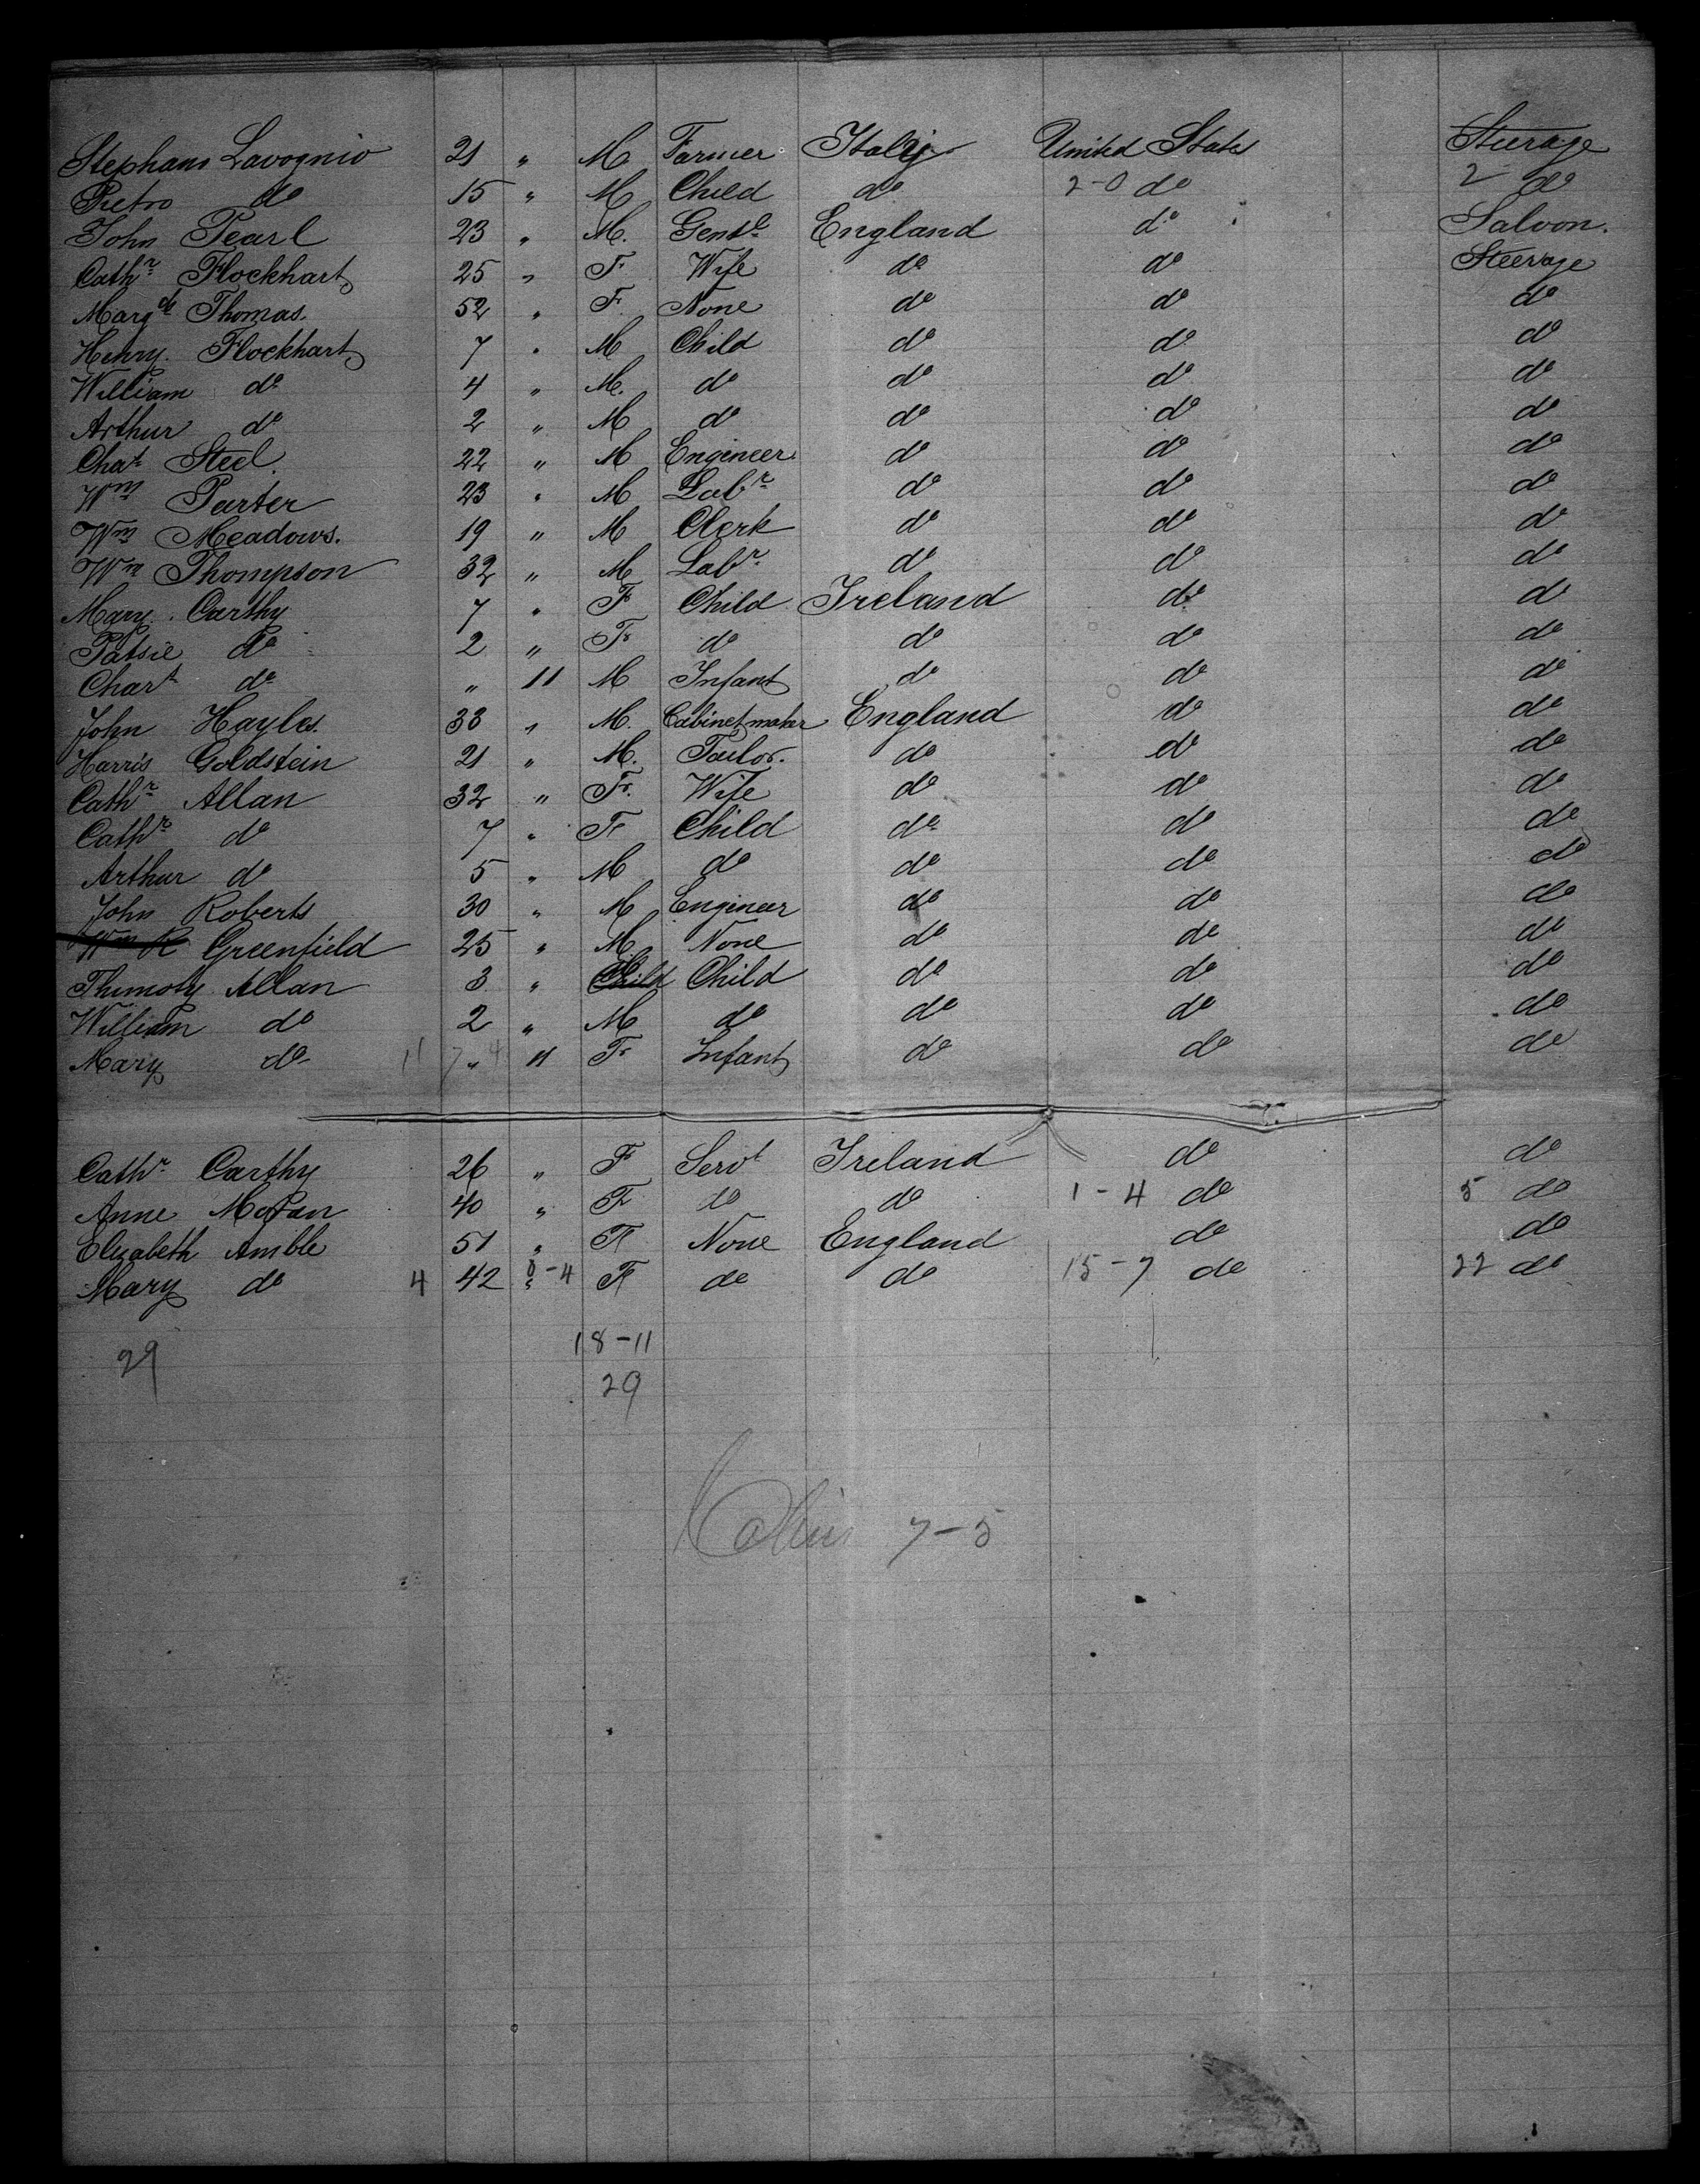 Stephano Lavognio 21 " M Farmer Italy United States Steerage
Pietro do 15 " M Child do 2-0 do 2 do
John Pearl 23 " M. Gentle England do Saloon.
Cathr Flockhart 25 " F Wife do do Steerage
Margt Thomas. 52 " F. None do do do
Henry. Flockhart 7 " M Child do do do
William do 4 " M. do do do do
Arthur do 2 " M do do do do
Chas Steel. 22 " M Engineer do do do
Wm Parter 23 " M Labr do do do
Wm Meadows. 19 " M Clerk do do do
Wm Thompson 32 " M Labr do do do
Mary. Carthy 7 " F Child Ireland do do
Patsie do 2 " F do do do do
Chart do " 11 M Infant do do do
John Hayles. 33 " M. Cabinet maker England do do
Harris Goldstein 21 " M. Tailor. do do do
Cathr Allan 32 " F. Wife do do do
Cathr do 7 " F Child do do do
Arthur do 5 " M do do do do
John Roberts 30 " M Engineer do do do
Wm R Greenfield 25 " M None do do do
Thimoty Allan 3 " Child Child do do do
William do 2 " M do do do do
Mary do 11 7-4 " 11 F Infant do do do
Cathr Carthy 26 " F Servt Ireland do do
Anne Moran 40 " F do do 1-4 do 5 do
Elizabeth Amble 51 " F None England do do
Mary do 4 42 " 0-4 F do do 15-7 do 22 do
29 18-11
29
7-5